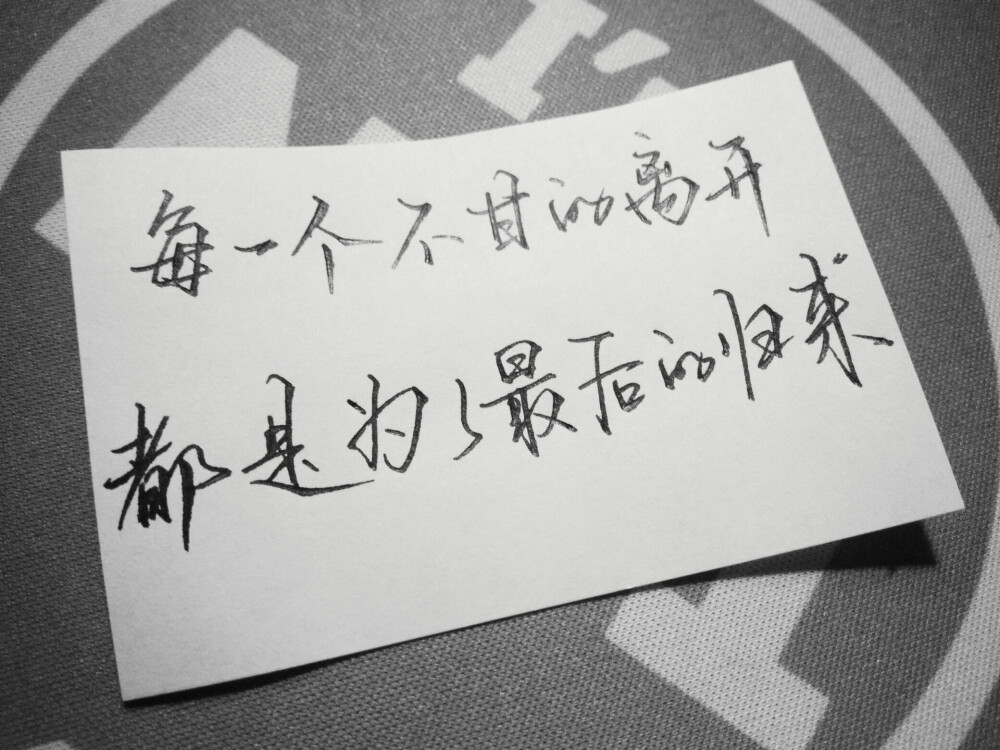 每一个不甘的离开
都是为了最后的归来